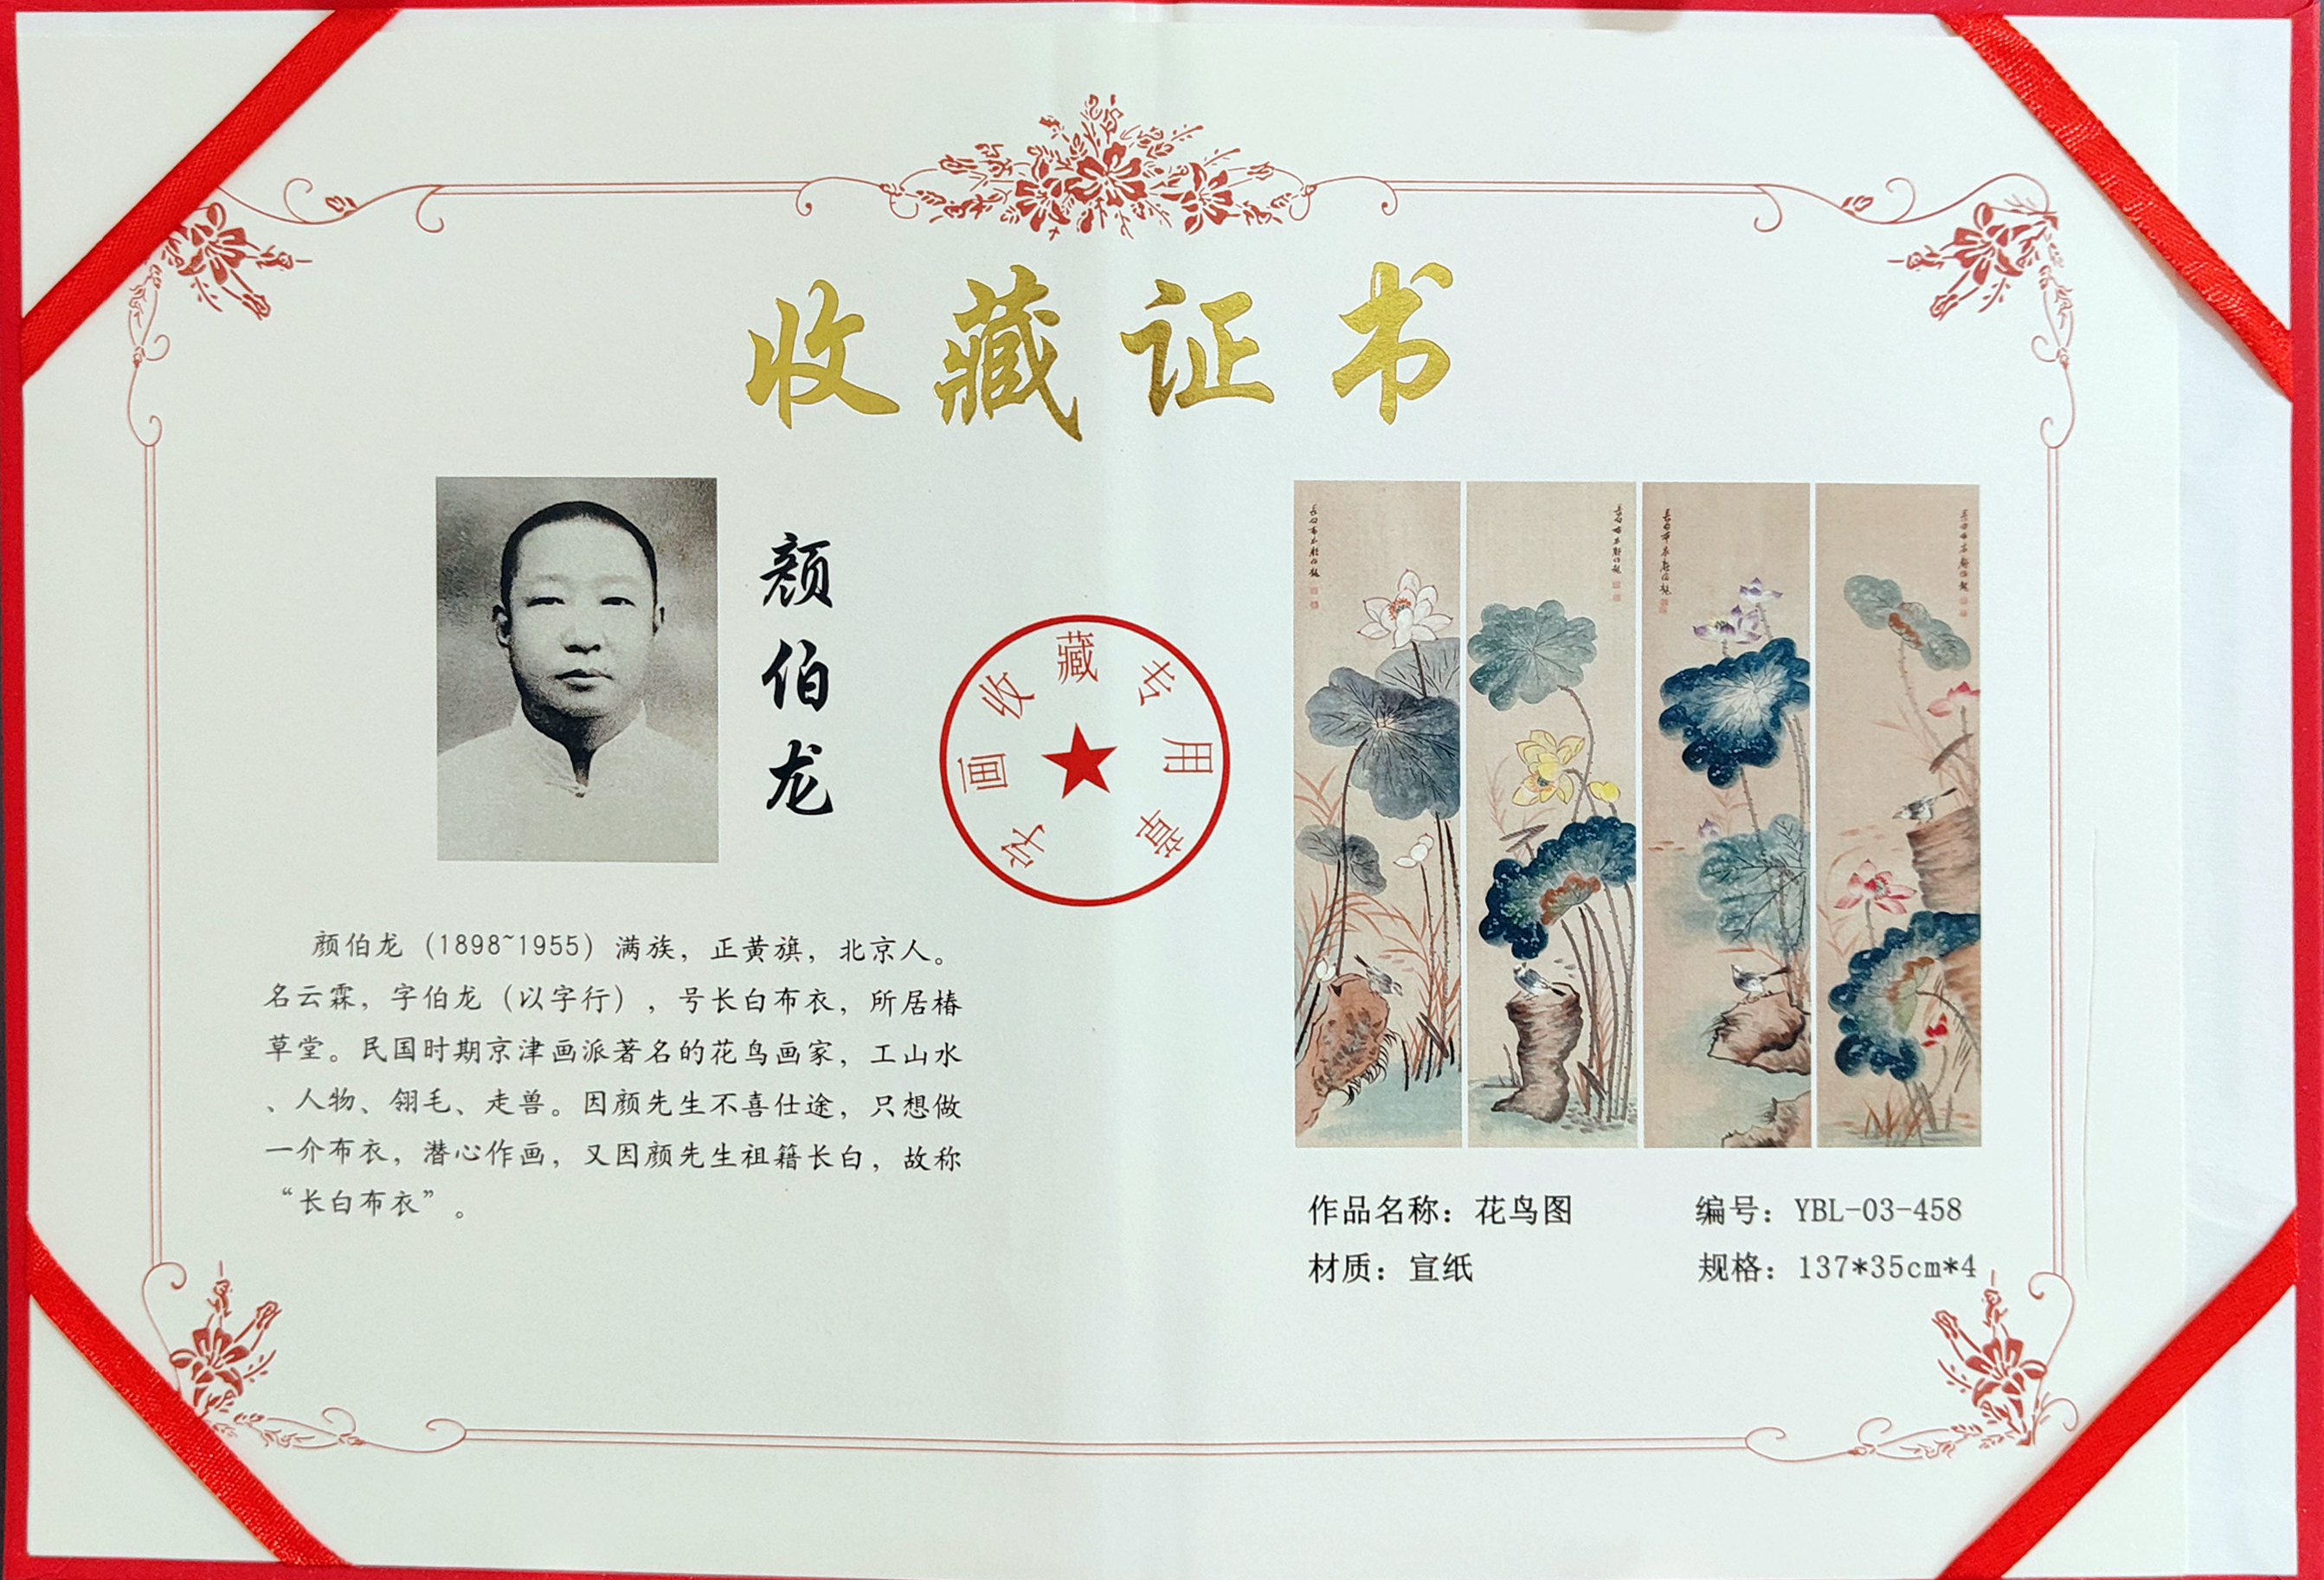 收藏证书
颜伯龙
字画收藏专用章
颜伯龙（1898~1955）满族，正黄旗，北京人。
名云霖，字伯龙（以字行），号长白布衣，所居椿
草堂。民国时期京津画派著名的花鸟画家，工山水
、人物、翎毛、走兽。因颜先生不喜仕途，只想做
一介布衣，潜心作画，又因颜先生祖籍长白，故称
“长白布衣”。
长白布衣颜伯龍
长白布衣颜伯龍
长白布衣颜伯龍
长白布衣颜伯龍
作品名称：花鸟图
编号：YBL-03-458
材质：宣纸
规格：137*35cm*4